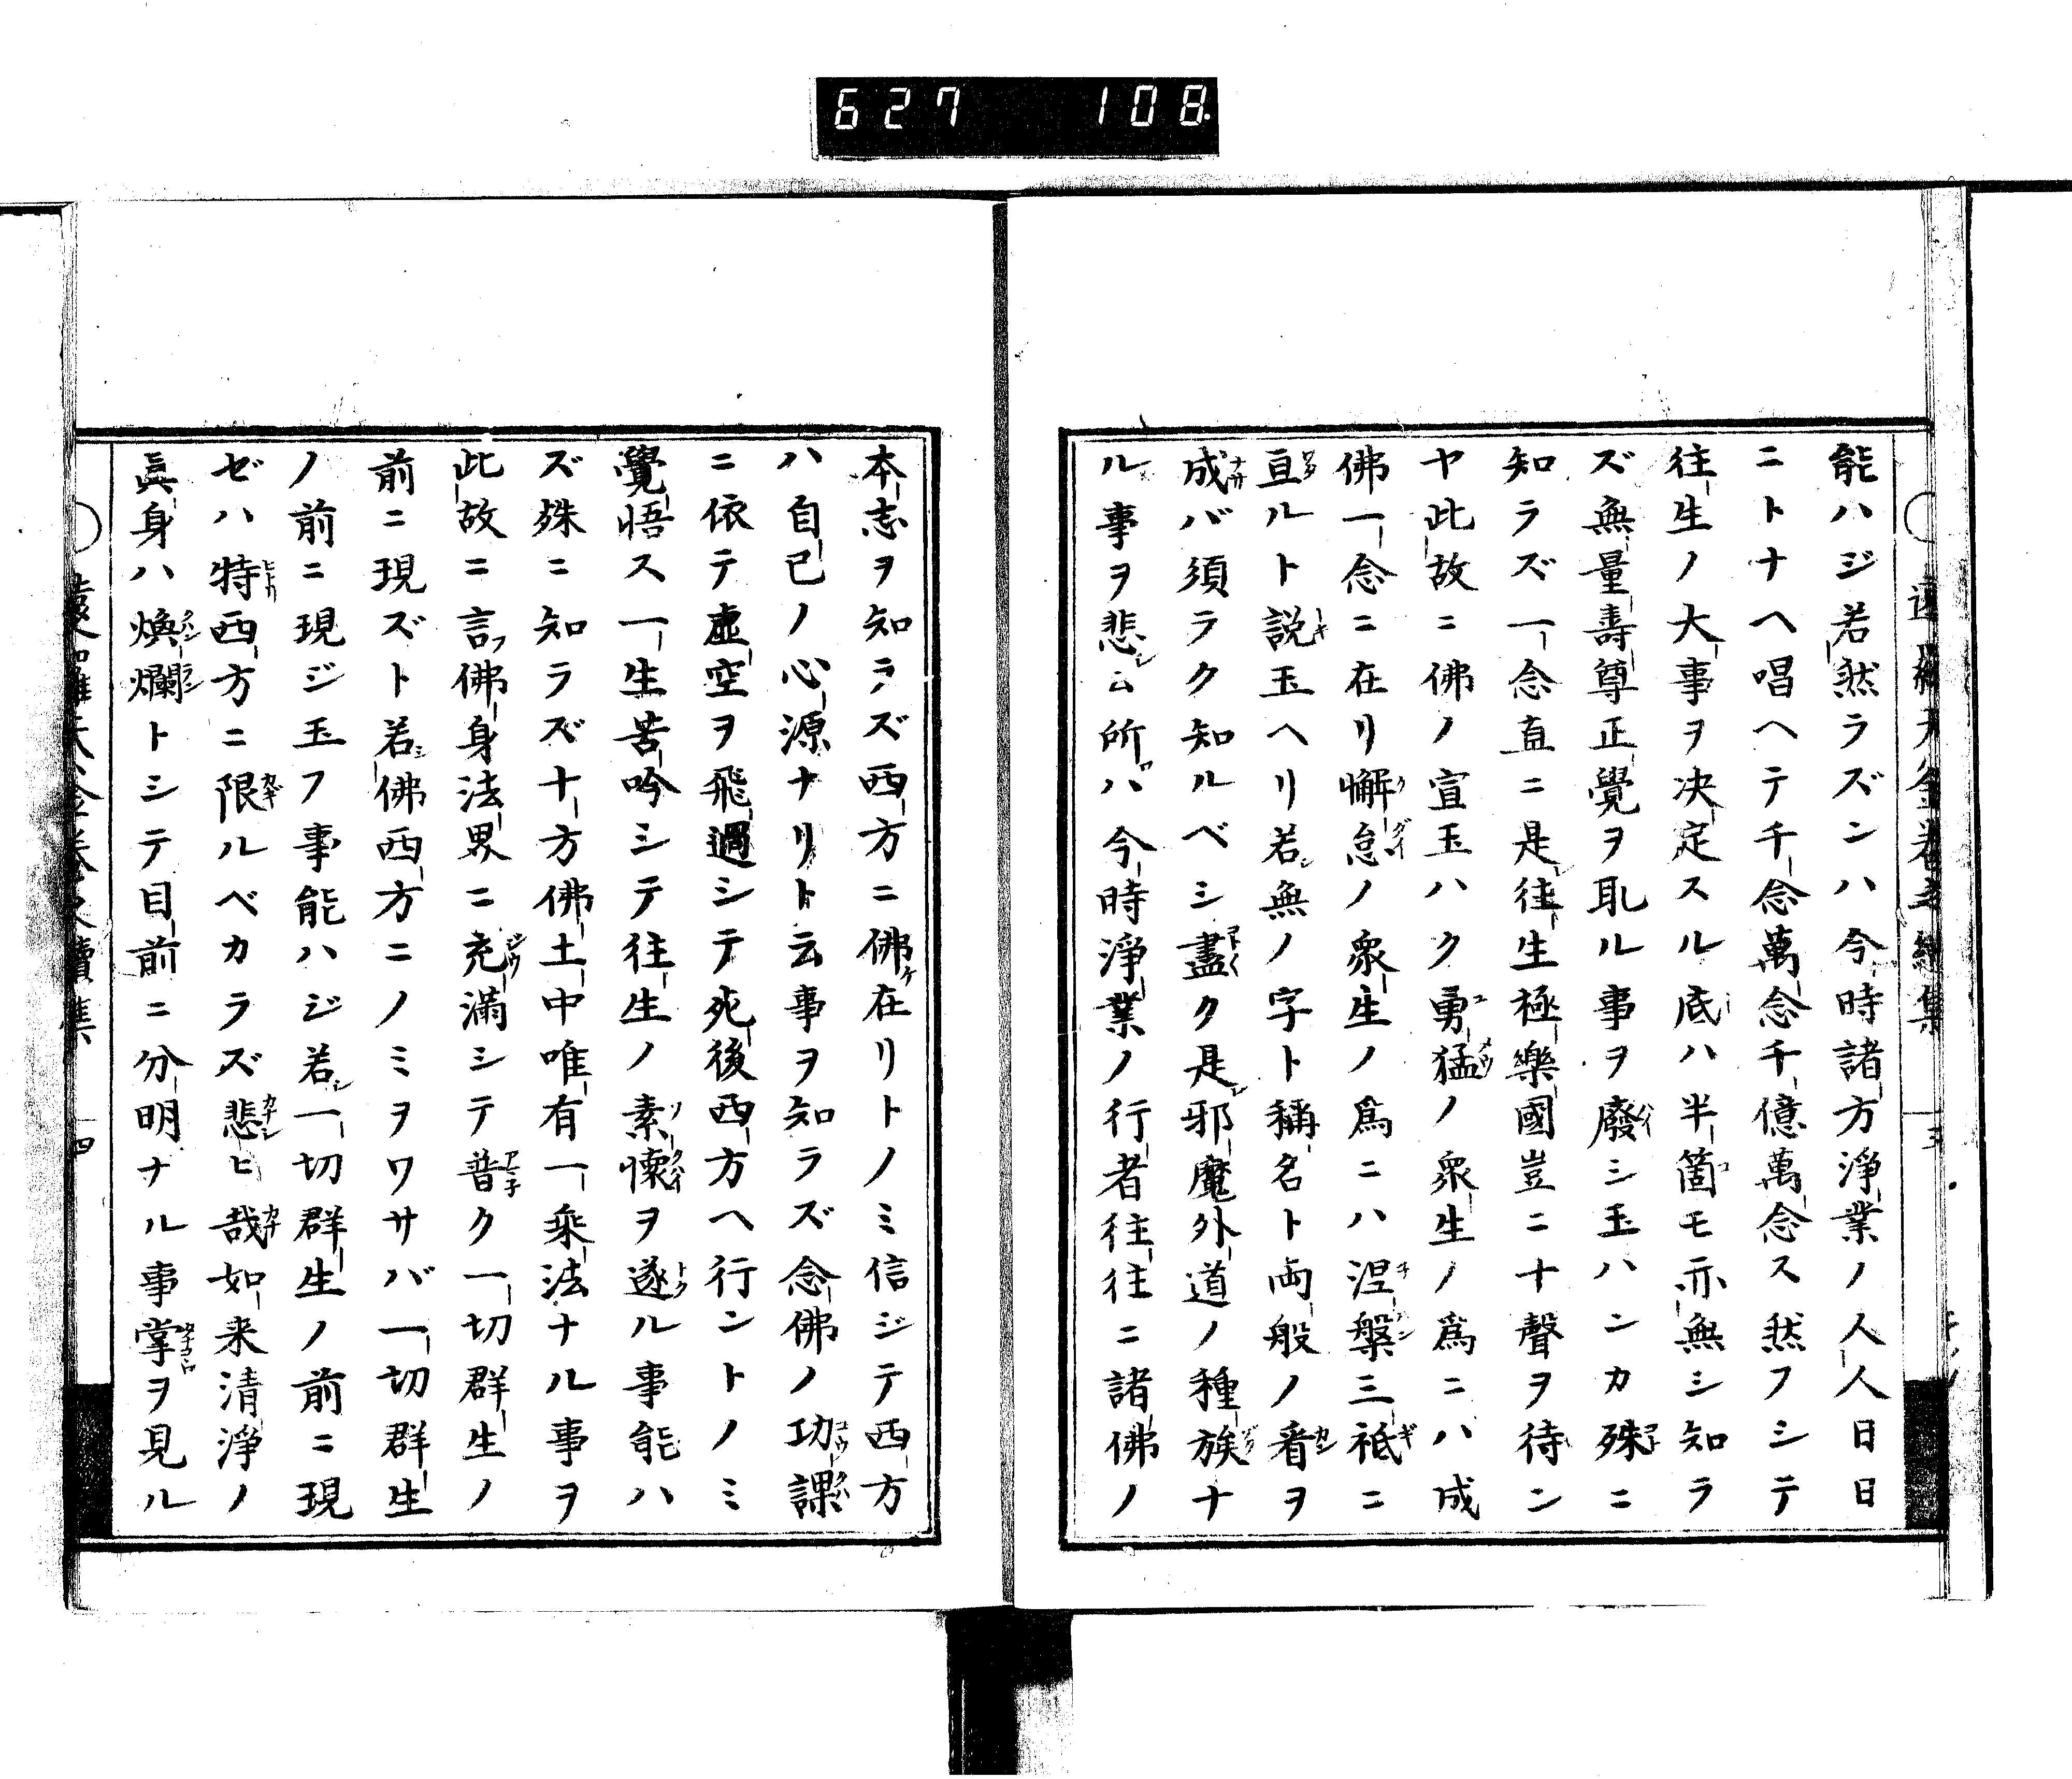 627 108
能ハジ若然ラズンハ今時諸方淨業ノ人人日日
ニトナヘ唱ヘテ千念萬念千億萬念ス然フシテ
往生ノ大事ヲ決定スル底ハ半箇モ亦無シ知ラ
ズ無量壽尊正覺ヲ耴ル事ヲ廢シ玉ハンカ殊ニ
知ラズ一念直ニ是往生極樂國豈ニ十聲ヲ待ン
ヤ此故ニ佛ノ宣玉ハク勇猛ノ衆生ノ爲ニハ成
佛一念ニ在リ懈怠ノ衆生ノ爲ニハ涅槃三祗ニ
亘ルト説玉ヘリ若無ノ字ト稱名ト両般ノ看ヲ
成バ須ラク知ルベシ盡ク是邪魔外道ノ種族ナ
ル事ヲ悲ム所ハ今時淨業ノ行者往往ニ諸佛ノ
本志ヲ知ラズ西方ニ佛在リトノミ信ジテ西方
ハ自己ノ心源ナリト云事ヲ知ラズ念佛ノ功課
ニ依テ虚空ヲ飛過シテ死後西方ヘ行ントノミ
覺悟ス一生苦吟シテ往生ノ素懐ヲ遂ル事能ハ
ズ殊ニ知ラズ十方佛土中唯有一乘法ナル事ヲ
此故ニ言佛身法界ニ充滿シテ普ク一切群生ノ
前ニ現ズト若佛西方ニノミヲワサバ一切群生
ノ前ニ現ジ玉フ事能ハジ若一切群生ノ前ニ現
ゼハ特西方ニ限ルベカラズ悲ヒ哉如来清淨ノ
眞身ハ煥爛トシテ目前ニ分明ナル事掌ヲ見ル
四